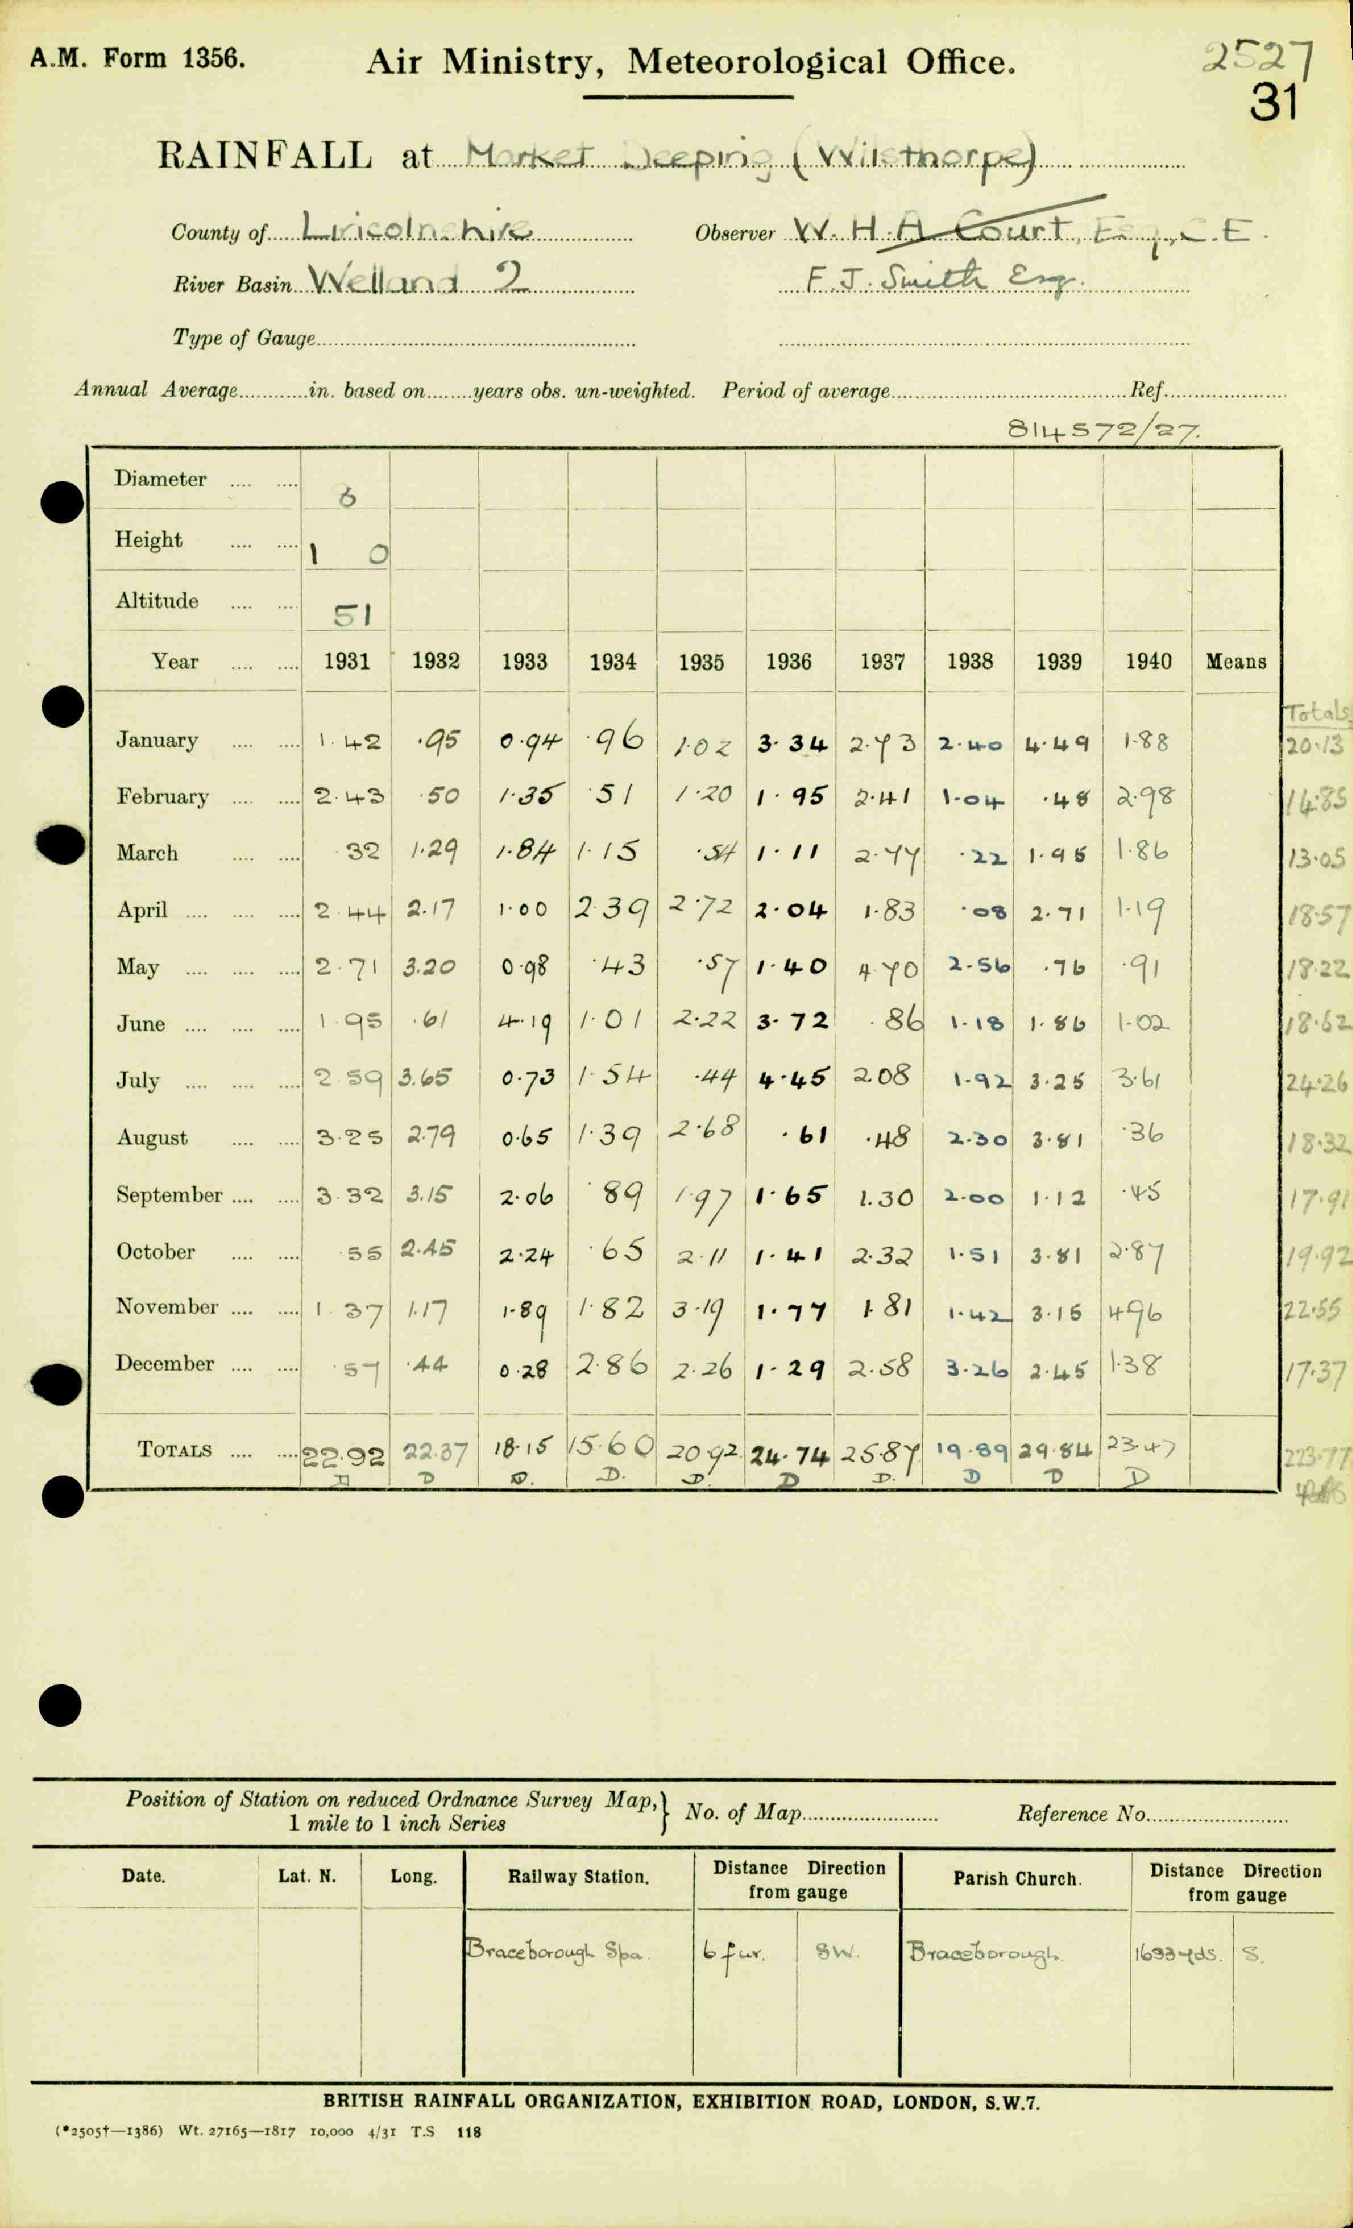 A.M. Form 1356. Air Ministry, Meteorological Office. 2527
31
RAINFALL at Market Deeping (Wilsthorpe)
County of Lincolnshire Observer W. H. A. Court, Esq., C.E.
River Basin Welland 2 F. J. Smith Esq.
Type of Gauge
Annual Average in. based on years obs. un-weighted. Period of average Ref.
814572/27.
Diameter 6
Height 1 0
Altitude 51
Year 1931 1932 1933 1934 1935 1936 1937 1938 1939 1940 Means
Totals
January 1.42 .95 0.94 .96 1.02 3.34 2.73 2.40 4.49 1.88 20.13
February 2.43 .50 1.35 .51 1.20 1.95 2.41 1.04 .48 2.98 14.85
March .32 1.29 1.84 1.15 .54 1.11 2.77 .22 1.95 1.86 13.05
April 2.44 2.17 1.00 2.39 2.72 2.04 1.83 .08 2.71 1.19 18.57
May 2.71 3.20 0.98 .43 .57 1.40 4.70 2.56 .76 .91 18.22
June 1.95 .61 4.19 1.01 2.22 3.72 .86 1.18 1.86 1.02 18.62
July 2.59 3.65 0.73 1.54 .44 4.45 2.08 1.92 3.25 3.61 24.26
August 3.25 2.79 0.65 1.39 2.68 .61 .48 2.30 3.81 .36 18.32
September 3.32 3.15 2.06 .89 1.97 1.65 1.30 2.00 1.12 .45 17.91
October .55 2.45 2.24 .65 2.11 1.41 2.32 1.51 3.81 2.87 19.92
November 1.37 1.17 1.89 1.82 3.19 1.77 1.81 1.42 3.15 4.96 22.55
December .57 .44 0.28 2.86 2.26 1.29 2.58 3.26 2.45 1.38 17.37
TOTALS 22.92 22.37 18.15 15.60 20.92 24.74 25.87 19.89 29.84 23.47 223.77
D D D. D. D. D D. D D D
Position of Station on reduced Ordnance Survey Map, 1 mile to 1 inch Series } No. of Map Reference No.
Date. Lat. N. Long. Railway Station. Distance Direction from gauge Parish Church. Distance Direction from gauge
Braceborough Spa. 6 fur. SW. Braceborough. 1693 yds. S.
BRITISH RAINFALL ORGANIZATION, EXHIBITION ROAD, LONDON, S.W.7.
(*2505†—1386) Wt. 27165—1817 10,000 4/31 T.S 118